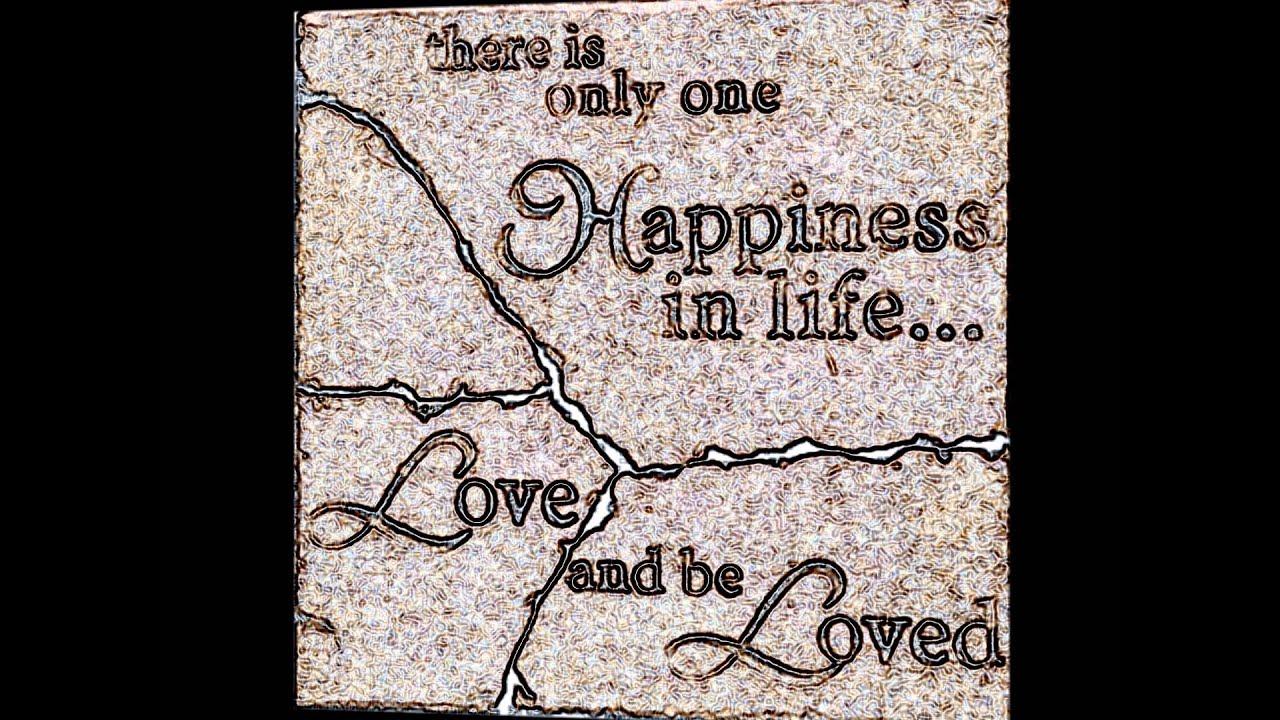 there is
only one
Happiness
in life...
Love
and be
Loved